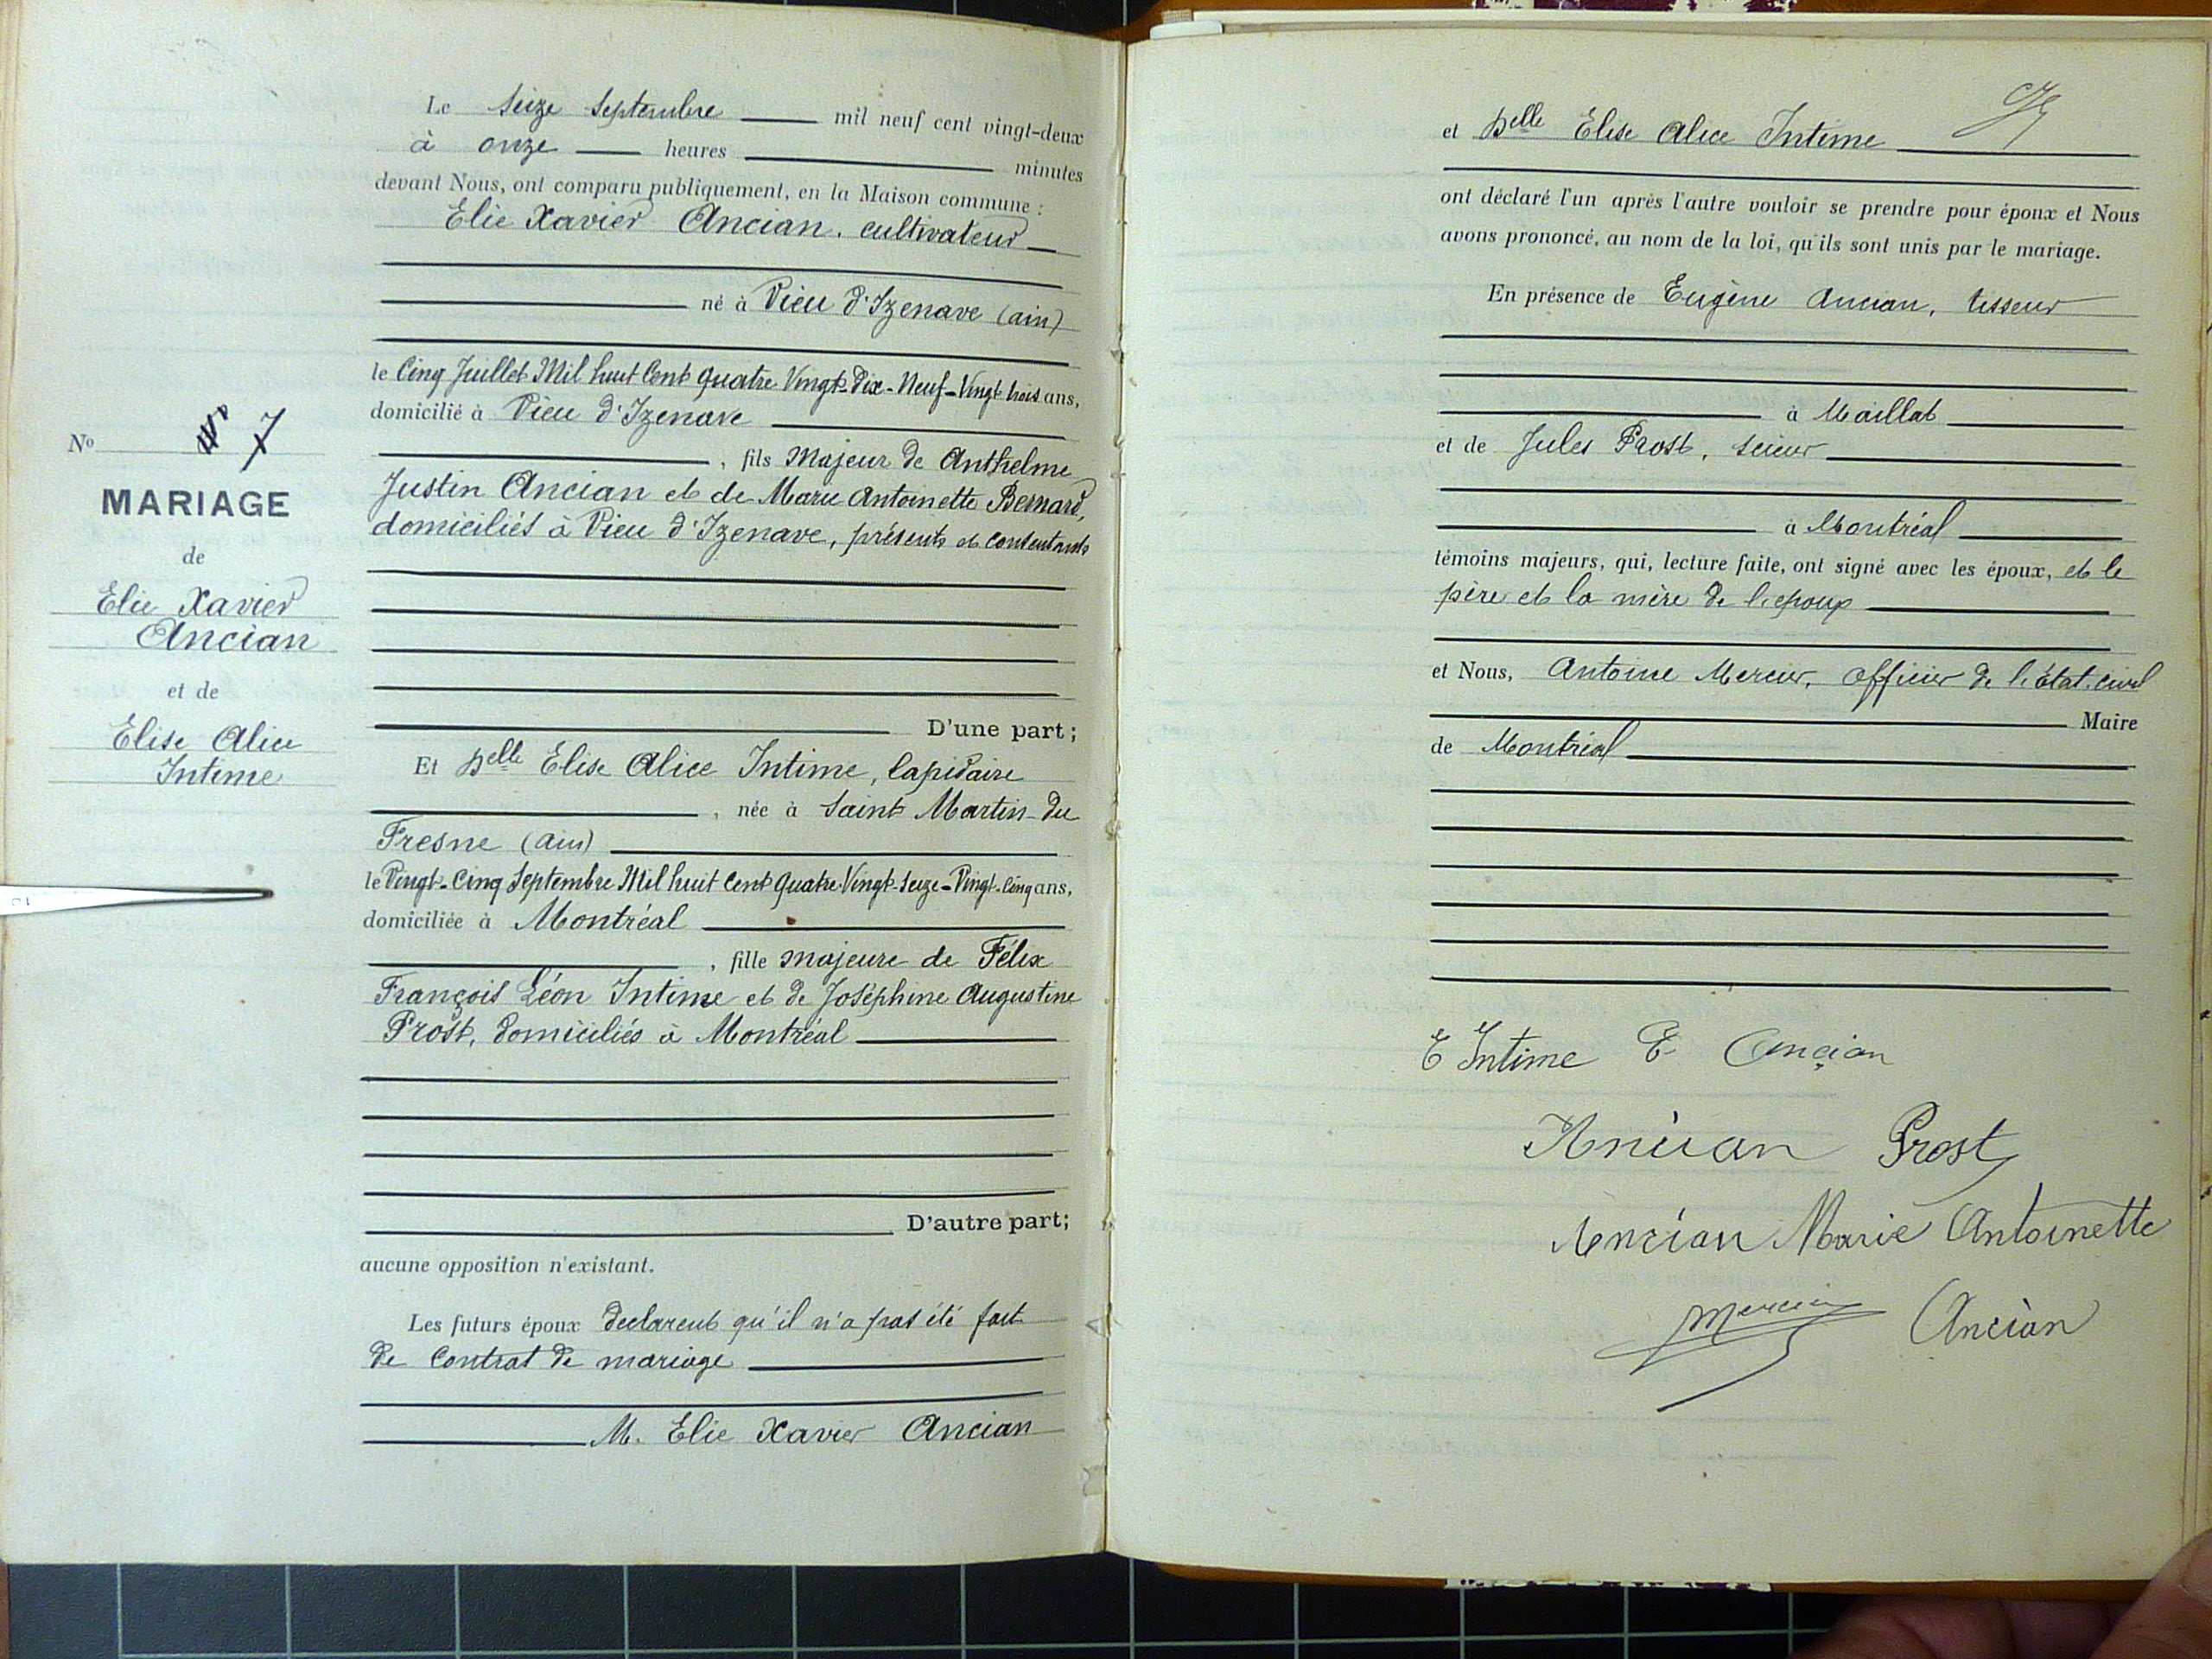 Le seize septembre mil neuf cent vingt-deux
à onze heures minutes
devant Nous, ont comparu publiquement, en la Maison commune :
Elie Xavier Ancian, cultivateur
né à Vieu d'Izenave (ain)
le Cinq Juillet Mil huit Cent Quatre Vingt-Dix-Neuf - Vingt trois ans,
domicilié à Vieu d'Izenave
, fils Majeur de Anthelme
Justin Ancian et de Marie Antoinette Bernard,
domiciliés à Vieu d'Izenave, présents et consentants
D'une part ;
Et Delle Elise Alice Intime, lapidaire
, née à Saint Martin-du
Fresne (ain)
le Vingt-Cinq Septembre Mil huit Cent Quatre Vingt-Seize - Vingt-Cinq ans,
domiciliée à Montréal
, fille majeure de Félix
François Léon Intime et de Joséphine Augustine
Prost, domiciliés à Montréal
D'autre part ;
aucune opposition n'existant.
Les futurs époux déclarent qu'il n'a pas été fait
de Contrat de mariage
M. Elie Xavier Ancian
No 7
MARIAGE
de
Elie Xavier
Ancian
et de
Elise Alice
Intime
et Delle Elise Alice Intime
ont déclaré l'un après l'autre vouloir se prendre pour époux et Nous
avons prononcé, au nom de la loi, qu'ils sont unis par le mariage.
En présence de Eugène Ancian, tisseur
à Maillat
et de Jules Prost, scieur
à Montréal
témoins majeurs, qui, lecture faite, ont signé avec les époux, et le
père et la mère de l'époux
et Nous, Antoine Mercier, officier de l'état-civil
Maire
de Montréal
E Intime E Ancian
Ancian Prost
Ancian Marie Antoinette
Mercier Ancian